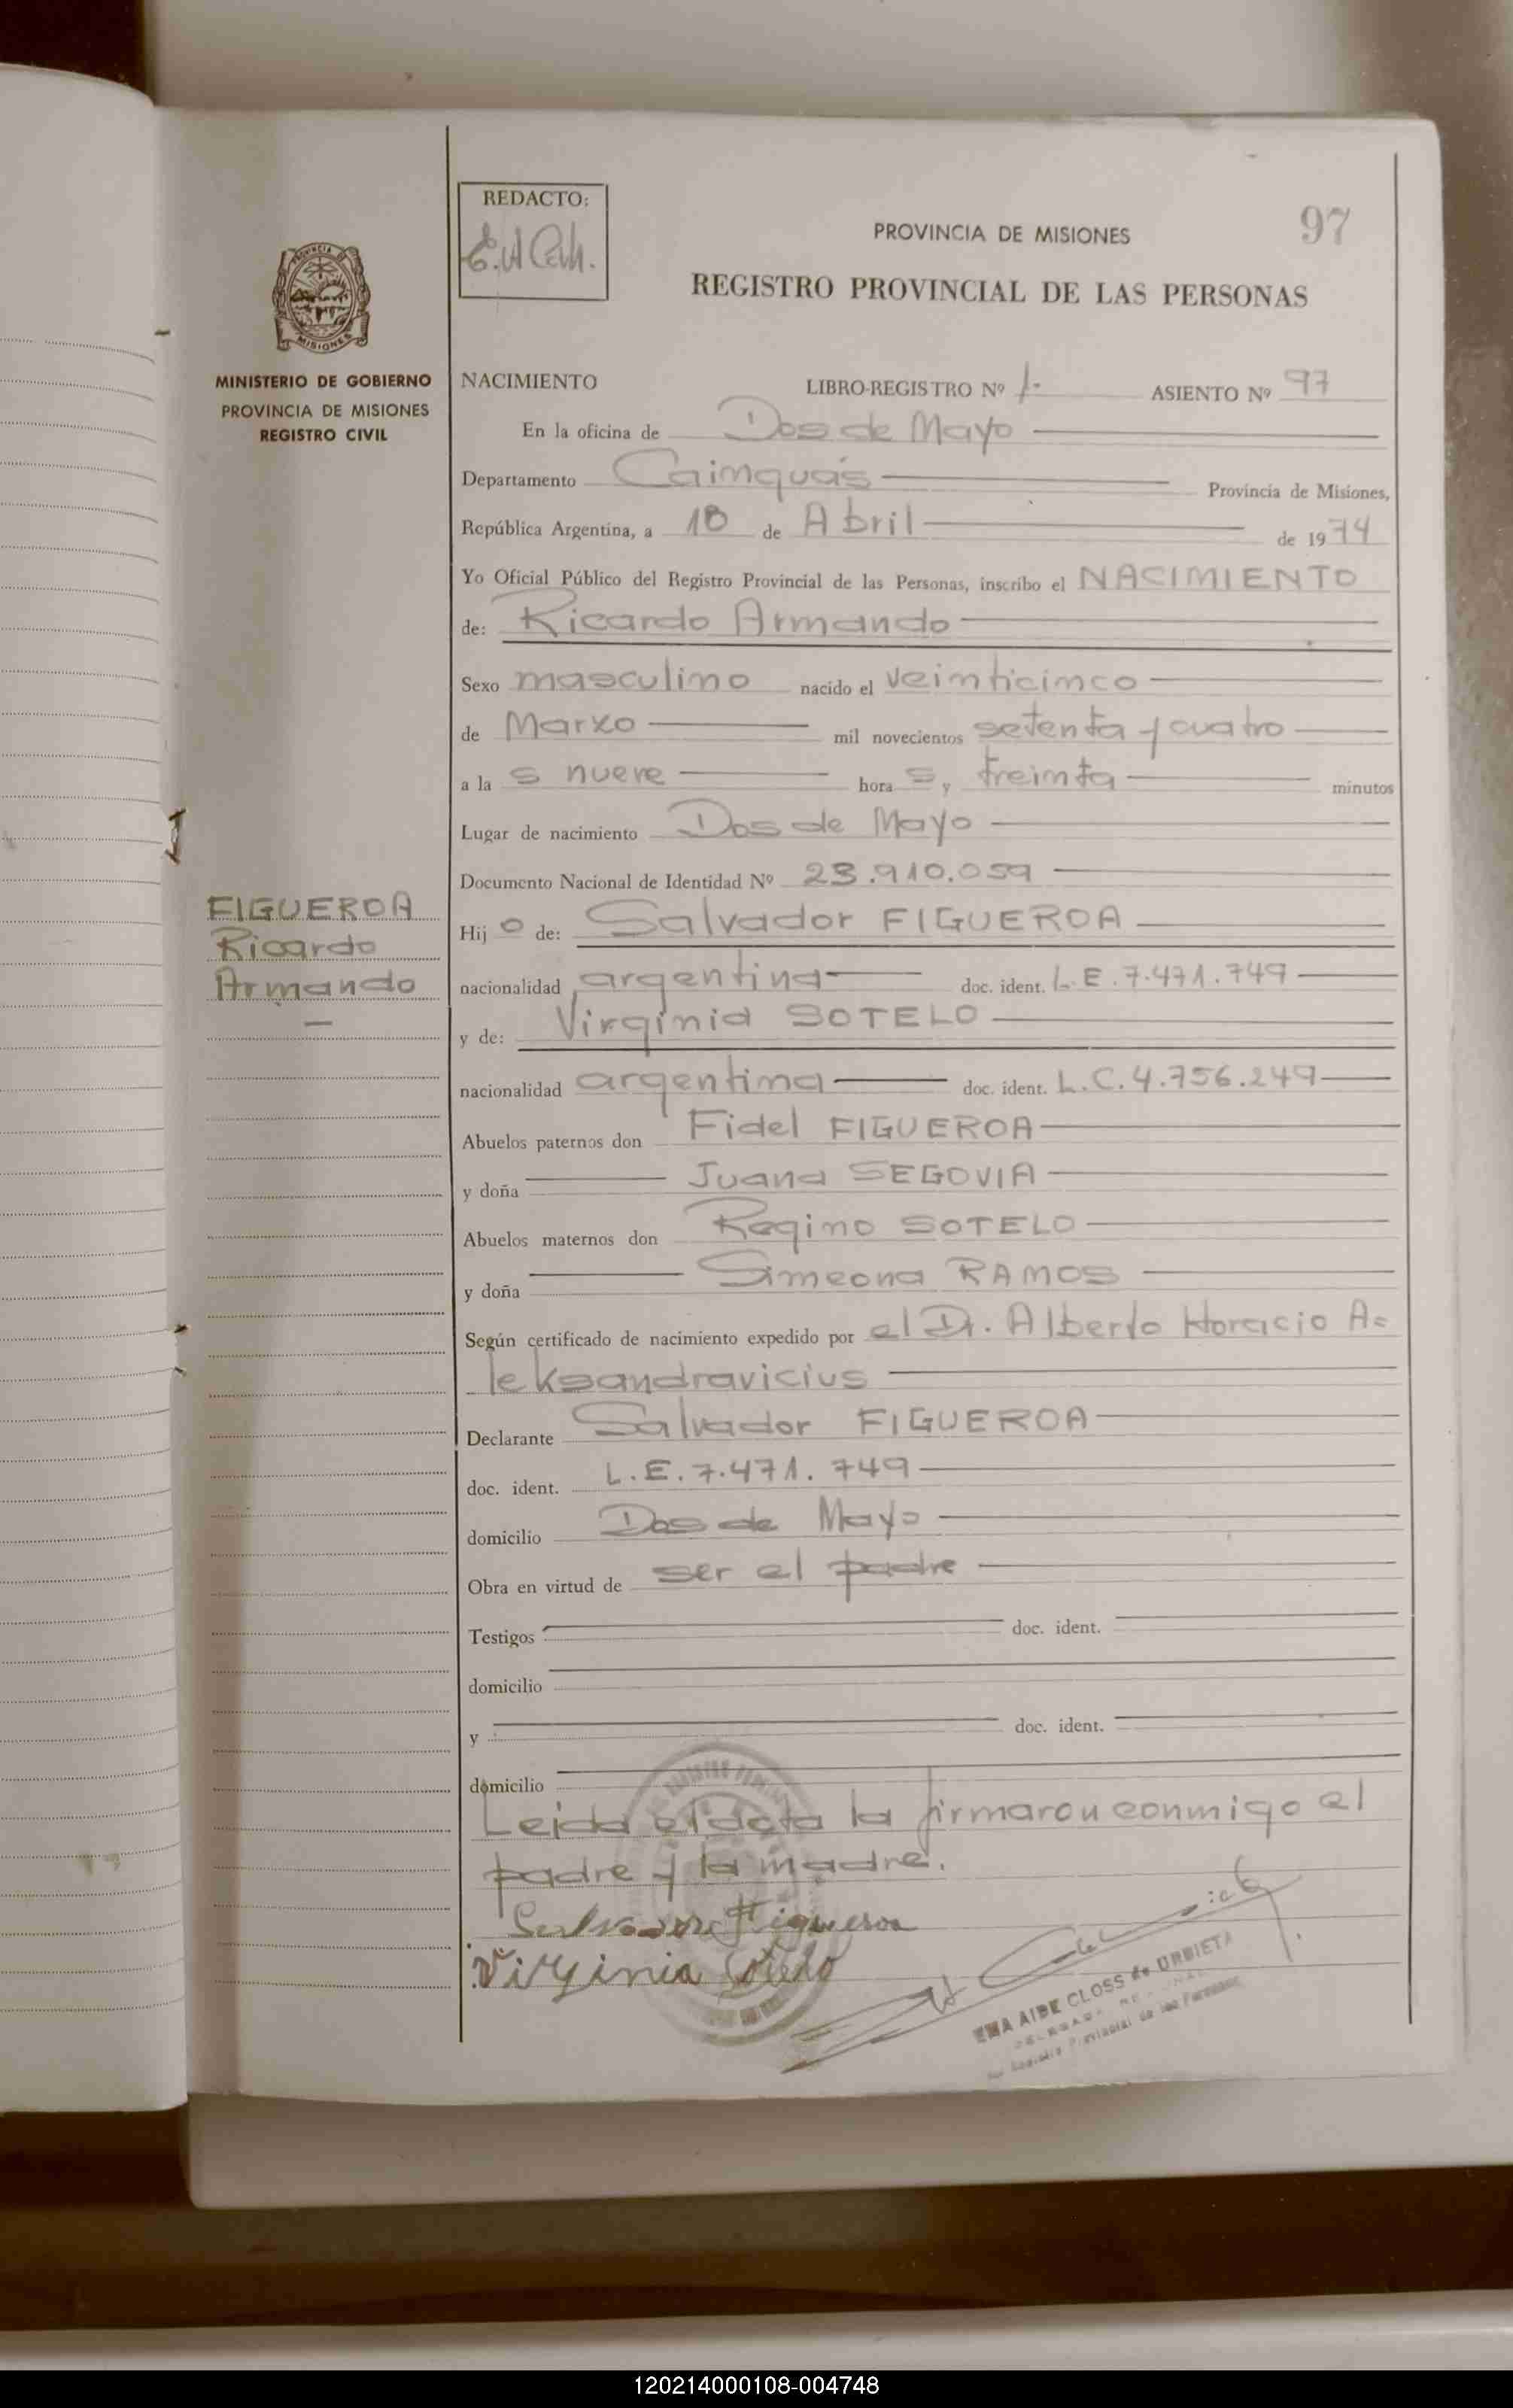 REDACTO:
97
PROVINCIA DE MISIONES
REGISTRO PROVINCIAL DE LAS PERSONAS
PROVINCIA DE
MISIONES
MINISTERIO DE GOBIERNO
PROVINCIA DE MISIONES
REGISTRO CIVIL
FIGUEROA
Ricardo
Armando
NACIMIENTO LIBRO-REGISTRO Nº 1- ASIENTO Nº 97
En la oficina de Dos de Mayo
Departamento Cainguás Provincia de Misiones,
República Argentina, a 10 de Abril de 1974
Yo Oficial Público del Registro Provincial de las Personas, inscribo el NACIMIENTO
de: Ricardo Armando
Sexo masculino nacido el veinticinco
de Marzo mil novecientos setenta y cuatro
a la s nueve hora s y treinta minutos
Lugar de nacimiento Dos de Mayo
Documento Nacional de Identidad Nº 23.910.059
Hij o de: Salvador FIGUEROA
nacionalidad argentina doc. ident. L.E.7.471.749
y de: Virginia SOTELO
nacionalidad argentina doc. ident. L.C.4.756.249
Abuelos paternos don Fidel FIGUEROA
y doña Juana SEGOVIA
Abuelos maternos don Regino SOTELO
y doña Simeona RAMOS
Según certificado de nacimiento expedido por el Dr. Alberto Horacio A=
leksandravicius
Declarante Salvador FIGUEROA
doc. ident. L.E.7.471.749
domicilio Dos de Mayo
Obra en virtud de ser el padre
Testigos doc. ident.
domicilio
y doc. ident.
domicilio
Leida el acta la firmaron conmigo el
padre y la madre.
Salvador Figueroa
Virginia Sotelo
EMA AIDE CLOSS de URBIETA
Registro Provincial de las Personas
120214000108-004748